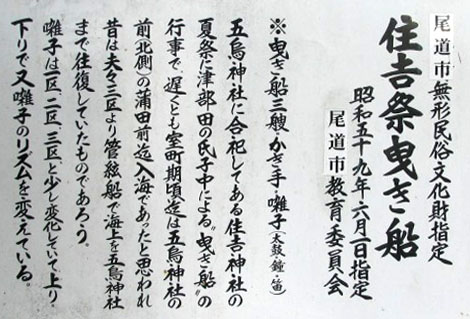 尾道市無形民俗文化財指定
住吉祭曳き船
昭和五十九年六月一日指定
尾道市教育委員会
※曳き船三艘・かき手・囃子(太鼓・鐘・笛)
五烏神社に合祀してある住吉神社の
夏祭に津部田の氏子中による“曳き船”の
行事で遅くとも室町期頃迄は五烏神社の
前(北側)の蒲田前迄入海であったと思われ
昔は夫々三区より管絃船で海上を五烏神社
まで往復していたものであろう。
囃子は一区、二区、三区、と少し変化していて上り・
下りで又囃子のリズムを変えている。